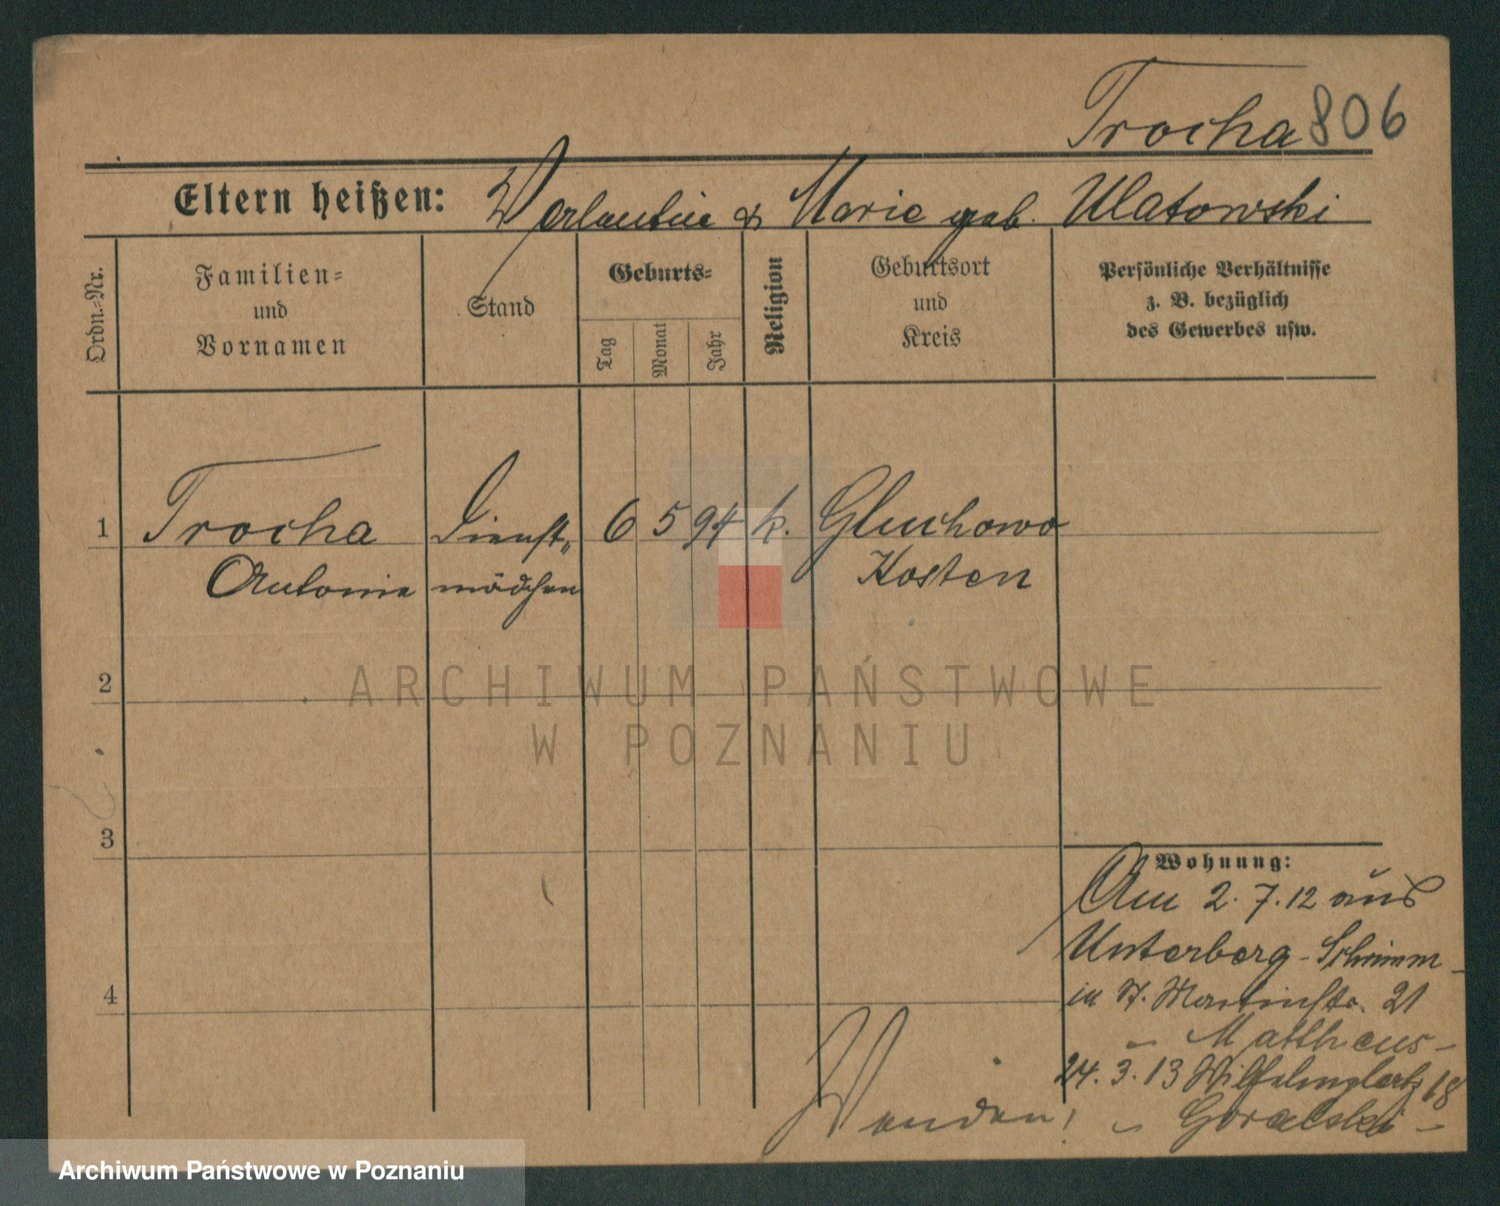 Trocha 806
Eltern heißen: Valentin & Marie geb. Ulatowski
Ordn.=Nr.
Familien=
und
Vornamen
Stand
Geburts=
Tag
Monat
Jahr
Religion
Geburtsort
und
Kreis
Persönliche Verhältnisse
z. B. bezüglich
des Gewerbes usw.
1 Trocha Dienst„ 6 5 94 k. Gluchowo
Antonie mädchen Kosten
ARCHIWUM PAŃSTWOWE
W POZNANIU
2
3
4
Wohnung:
Am 2.7.12 aus
Unterberg-Schrimm-
in St. Martinstr. 21
- Mattheus-
24.3.13 Wilhelmplatz 18
- Goralski -
Wenden!
Archiwum Państwowe w Poznaniu